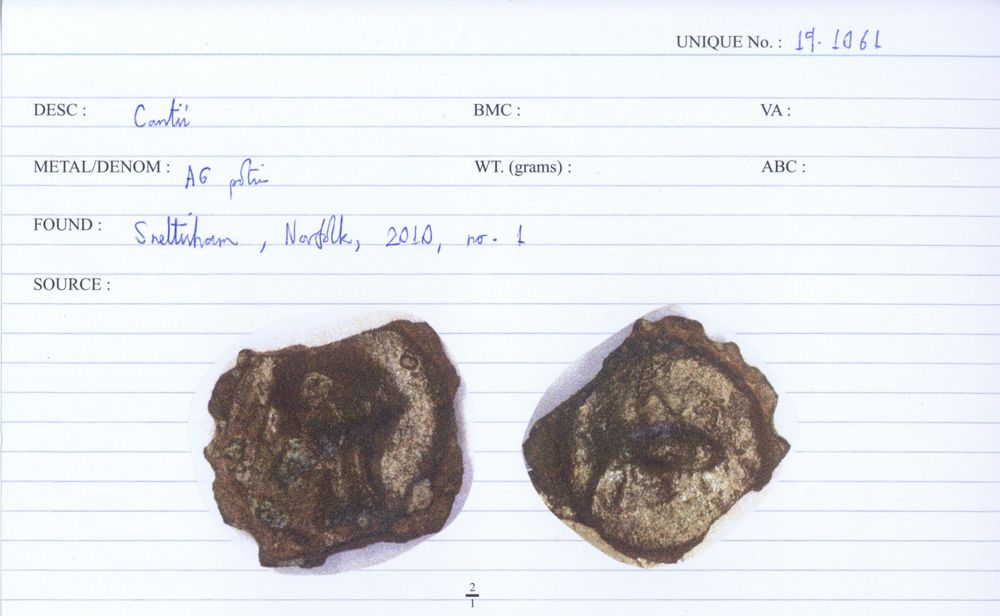 UNIQUE No. : 19. 1061
DESC : Cantii BMC : VA :
METAL/DENOM : AG potin WT. (grams) : ABC :
FOUND : Snettisham, Norfolk, 2010, no. 1
SOURCE :
2
1